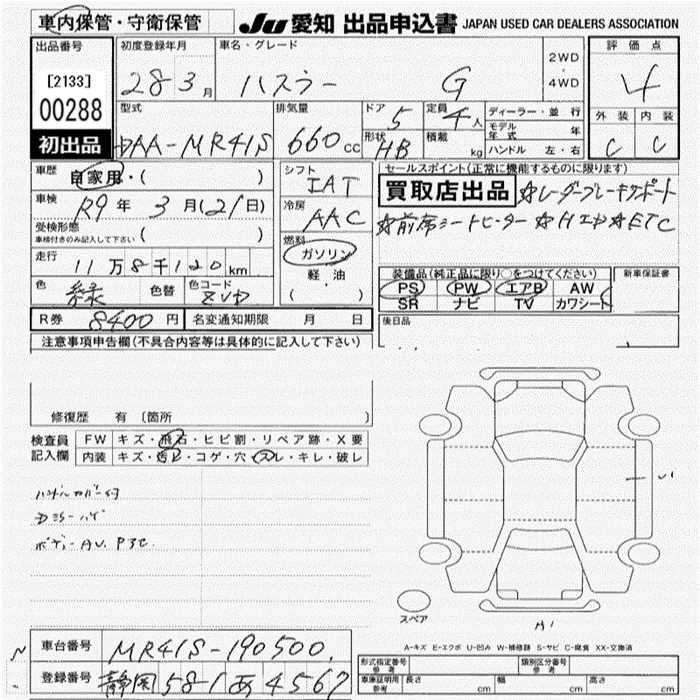 車内保管・守衛保管
JU 愛知 出品申込書 JAPAN USED CAR DEALERS ASSOCIATION
出品番号 初度登録年月 車名・グレード 評価点
[2133] 28 3月 ハスラー G 2WD・4WD 4
00288
型式 排気量 ドア 定員 ディーラー・並行 外装 内装
5 4人 モデル年式 年
初出品 DAA-MR41S 660cc 形状 HB 積載 kg ハンドル 左・右 C C
車歴 自家用・( ) シフト IAT セールスポイント(正常に機能するものに限ります)
車検 R9年 3月(21日) 冷房 AAC 買取店出品 ☆レーダーブレーキサポート
受検形態 車検付きのみ記入して下さい ( ) ☆前席シートヒーター ☆HエD ☆ETC
走行 11万8千120km 燃料 ガソリン
色 緑 色替 色コード 軽・油 ( ) 装備品(純正品に限り○をつけてください) 新車保証書
PS PW エアB AW
SR ナビ TV カワシート
R券 8400円 名変通知期限 月 日 後日品
注意事項申告欄(不具合内容等は具体的に記入して下さい)
修復歴 有 [箇所 ]
検査員記入欄 FW キズ・飛石・ヒビ割・リペア跡・X要
内装 キズ・汚レ・コゲ・穴・スレ・キレ・破レ
ハンドルカバー付
ボデーAU. P3C
スペア
A1
A-キズ E-エクボ U-凹み W-補修跡 S-サビ C-腐食 XX-交換済
車台番号 MR41S-190500. 形式指定番号 参考 類別区分番号 参考
登録番号 静岡581あ4567 車庫証明用 参考 長さ cm 幅 cm 高さ cm